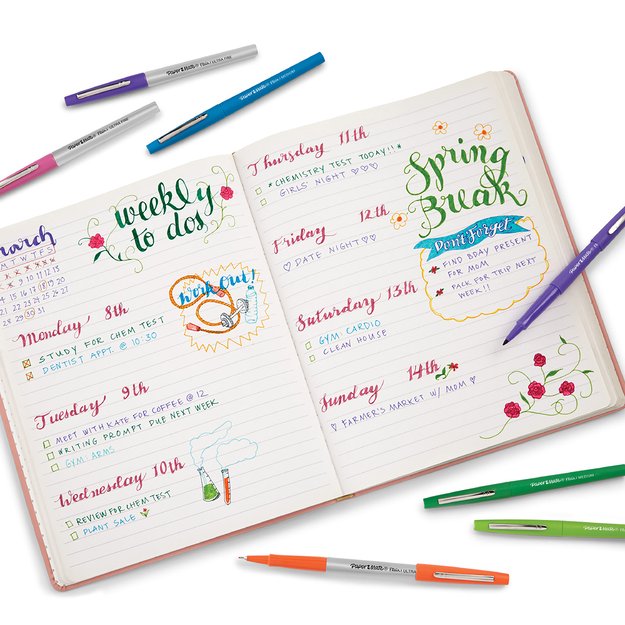 PAPER MATE® FLAIR | ULTRA FINE
PAPER MATE® FLAIR | MEDIUM
PAPER MATE® FLAIR | ULTRA FINE
weekly
to dos
march
M T W T F S
Monday 8th
STUDY FOR CHEM TEST
DENTIST APPT. @ 10:30
Work Out!
Tuesday 9th
MEET WITH KATE FOR COFFEE @ 12
WRITING PROMPT DUE NEXT WEEK
GYM: ARMS
Wednesday 10th
REVIEW FOR CHEM TEST
PLANT SALE
Thursday 11th
*CHEMISTRY TEST TODAY!!*
GIRLS NIGHT ♡♡♡
Friday 12th
♡ DATE NIGHT ♡
Saturday 13th
GYM: CARDIO
CLEAN HOUSE
Sunday 14th
♡ FARMER'S MARKET W/ MOM ♡
Spring
Break
Don't Forget
FIND BDAY PRESENT
FOR MOM
PACK FOR TRIP NEXT
WEEK!!
PAPER MATE® FLAIR | MEDIUM
PAPER MATE® FLAIR | MEDIUM
PAPER MATE® FLAIR | ULTRA